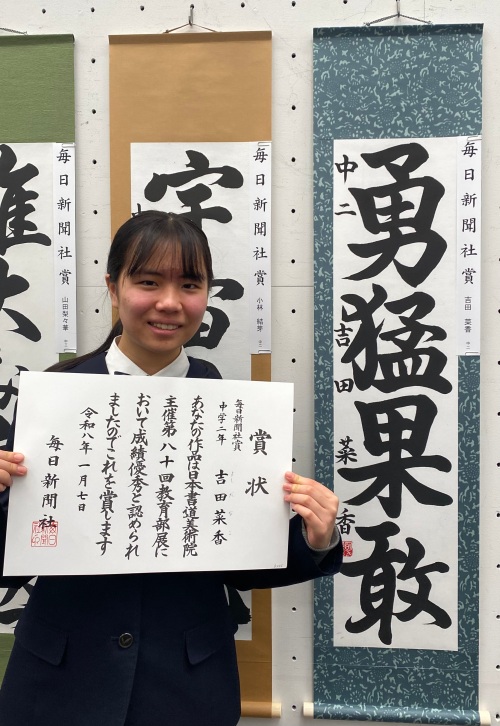 勇猛果敢
中二 吉田菜香
毎日新聞社賞 吉田 菜香 中二
毎日新聞社賞 小林 結芽 中二
毎日新聞社賞 山田梨々華 中二
宇宙
雄大な
賞状
毎日新聞社賞
中学二年 吉田菜香
あなたの作品は日本書道美術院
主催第八十回教育部展に
おいて成績優秀と認められ
ましたのでこれを賞します
令和八年一月七日
毎日新聞社